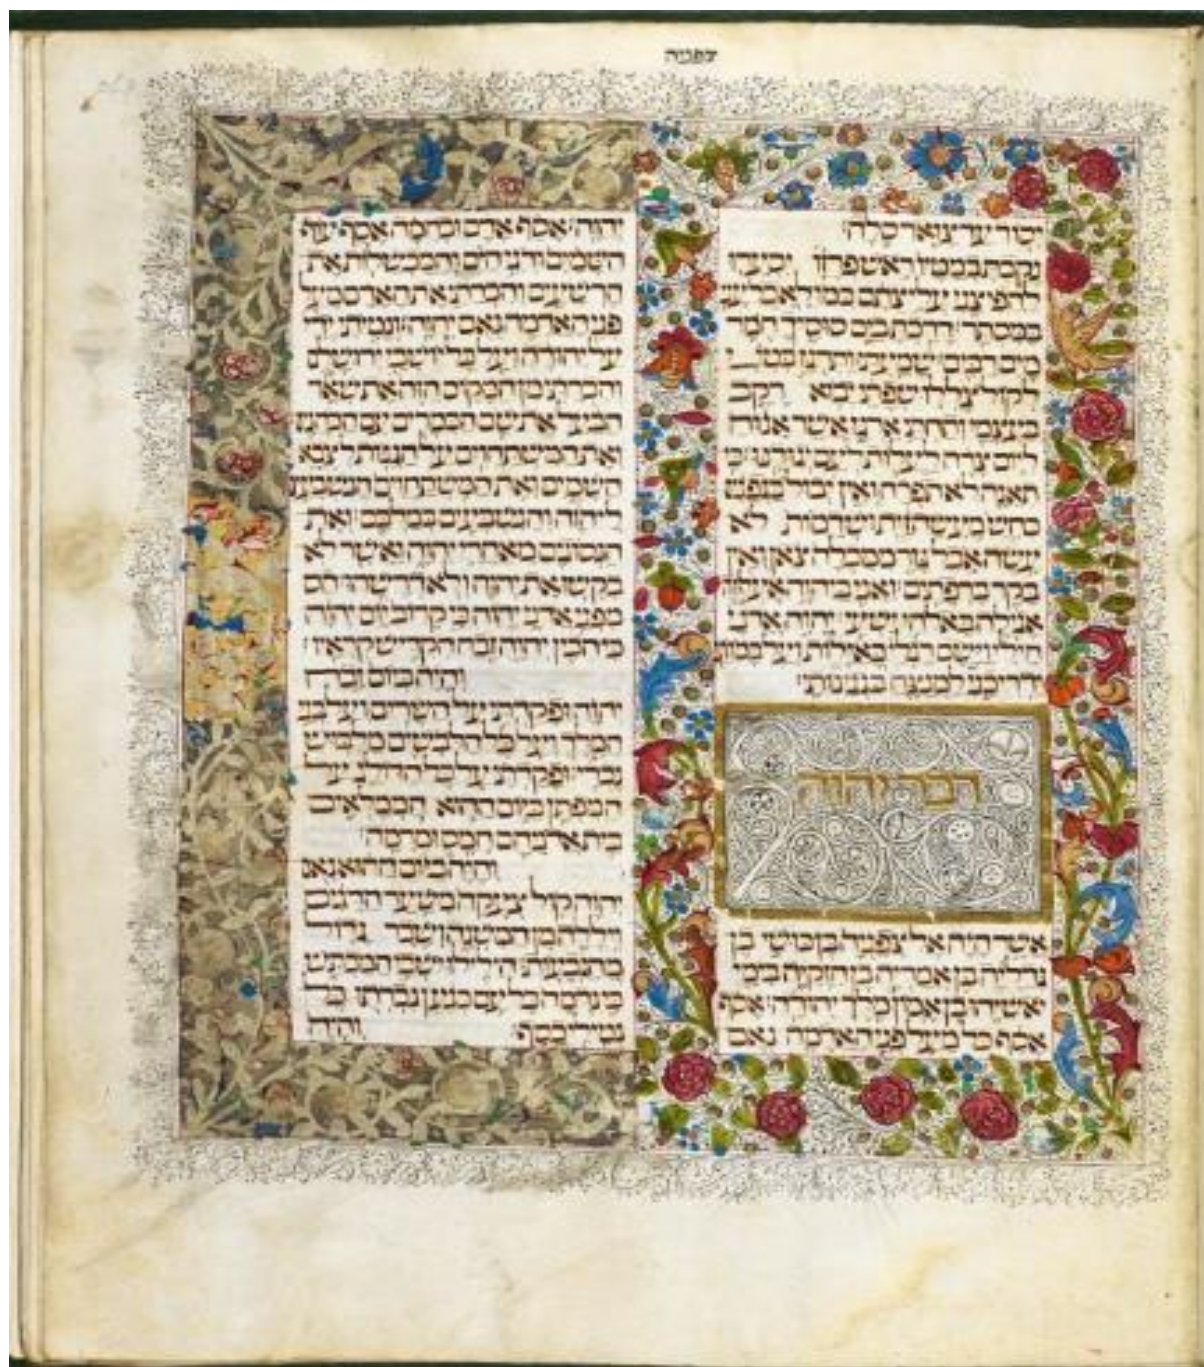 צפניה
יסוד עד צואר סלה׃
נקבת במטיו ראש פרזו יסערו
להפיצני עליצתם כמו לאכל עני
במסתר׃ דרכת בים סוסיך חמר
מים רבים׃ שמעתי ותרגז בטני
לקול צללו שפתי יבוא רקב
בעצמי ותחתי ארגז אשר אנוח
ליום צרה לעלות לעם יגודנו׃ כי
תאנה לא תפרח ואין יבול בגפנים
כחש מעשה זית ושדמות לא
עשה אכל גזר ממכלה צאן ואין
בקר ברפתים׃ ואני ביהוה אעלוזה
אגילה באלהי ישעי׃ יהוה אדני
חילי וישם רגלי כאילות ועל במותי
ידרכני למנצח בנגינותי׃
דבר יהוה
אשר היה אל צפניה בן כושי בן
גדליה בן אמריה בן חזקיה בימי
יאשיהו בן אמון מלך יהודה׃ אסף
אסף כל מעל פני האדמה נאם
יהוה׃ אסף אדם ובהמה אסף עוף
השמים ודגי הים והמכשלות את
הרשעים והכרתי את האדם מעל
פני האדמה נאם יהוה׃ ונטיתי ידי
על יהודה ועל כל יושבי ירושלם
והכרתי מן המקום הזה את שאר
הבעל את שם הכמרים עם הכהנים׃
ואת המשתחוים על הגגות לצבא
השמים ואת המשתחוים הנשבעים
ליהוה והנשבעים במלכם׃ ואת
הנסוגים מאחרי יהוה ואשר לא
בקשו את יהוה ולא דרשהו׃ הס
מפני אדני יהוה כי קרוב יום יהוה
כי הכין יהוה זבח הקדיש קראיו׃
והיה ביום זבח
יהוה ופקדתי על השרים ועל בני
המלך ועל כל הלבשים מלבוש
נכרי׃ ופקדתי על כל הדולג על
המפתן ביום ההוא הממלאים
בית אדניהם חמס ומרמה׃
והיה ביום ההוא נאם
יהוה קול צעקה משער הדגים
ויללה מן המשנה ושבר גדול
מהגבעות׃ הילילו ישבי המכתש
כי נדמה כל עם כנען נכרתו כל
נטילי כסף׃ והיה